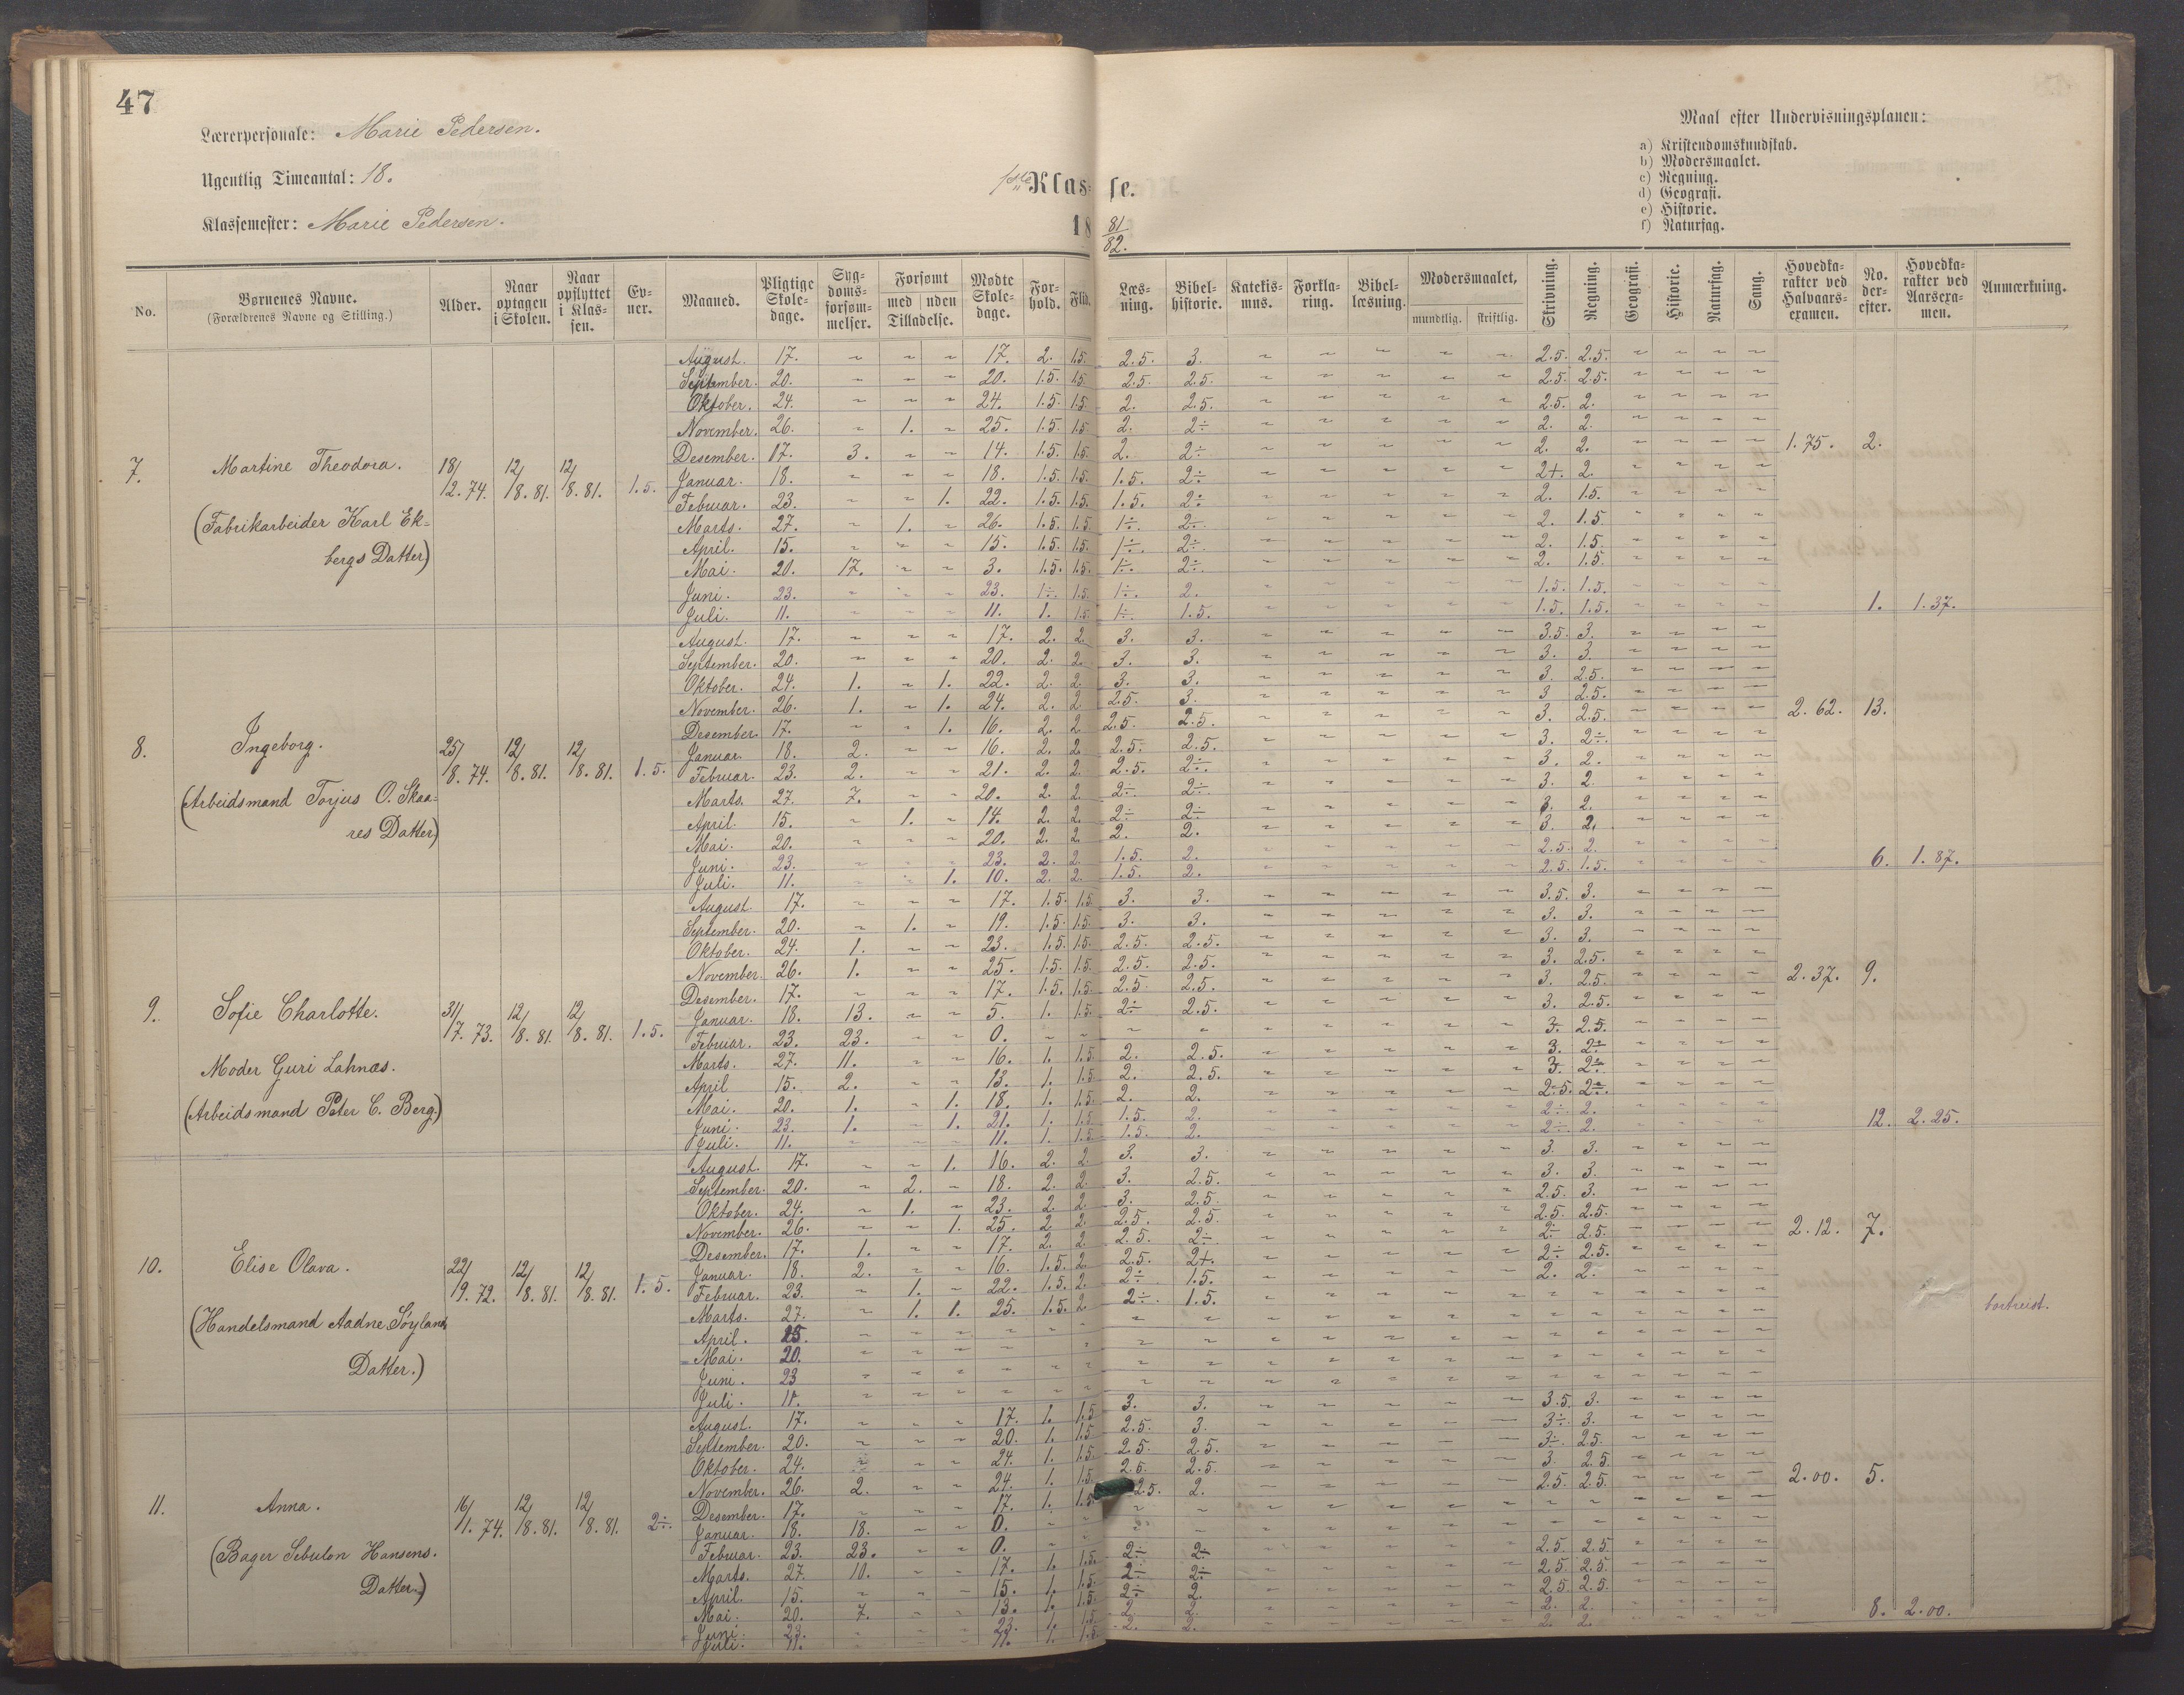 47
Lærerpersonale: Marie Pedersen.
Ugentlig Timeantal: 18.
Klassemester: Marie Pedersen.
1ste Klasse.
18 81/82.
Maal efter Undervisningsplanen:
a) Kristendomskundskab.
b) Modersmaalet.
c) Regning.
d) Geografi.
e) Historie.
f) Naturfag.
No. | Børnenes Navne. (Forældrenes Navne og Stilling.) | Alder. | Naar optagen i Skolen. | Naar opflyttet i Klassen. | Evner. | Maaned. | Pligtige Skoledage. | Sygdomsforsømmelser. | Forsømt med uden Tilladelse. | Mødte Skoledage. | Forhold. | Flid. | Læsning. | Bibelhistorie. | Katekismus. | Forklaring. | Bibellæsning. | Modersmaalet, mundtlig. skriftlig. | Skrivning. | Regning. | Geografi. | Historie. | Naturfag. | Sang. | Hovedkarakter ved Halvaarsexamen. | No. derefter. | Hovedkarakter ved Aarsexamen. | Anmærkning.
7. Martine Theodora. 18/12. 74. 12/8. 81. 12/8. 81. 1.5.
(Fabrikarbeider Karl Ek=
bergs Datter)
August. 17. ~ ~ ~ 17. 2. 1.5. 2.5. 3. ~ ~ ~ ~ ~ 2.5. 2.5. ~ ~ ~ ~
September. 20. ~ ~ ~ 20. 1.5. 1.5. 2.5. 2.5. ~ ~ ~ ~ ~ 2.5. 2.5. ~ ~ ~ ~
Oktober. 24. ~ ~ ~ 24. 1.5. 1.5. 2. 2.5. ~ ~ ~ ~ ~ 2.5. 2. ~ ~ ~ ~
November. 26. ~ 1. ~ 25. 1.5. 1.5. 2. 2÷ ~ ~ ~ ~ ~ 2. 2. ~ ~ ~ ~
Desember. 17. 3. ~ ~ 14. 1.5. 1.5. 2. 2÷ ~ ~ ~ ~ ~ 2. 2. ~ ~ ~ ~ 1.75. 2.
Januar. 18. ~ ~ ~ 18. 1.5. 1.5. 1.5. 2÷ ~ ~ ~ ~ ~ 2+. 2. ~ ~ ~ ~
Februar. 23. ~ ~ 1. 22. 1.5. 1.5. 1.5. 2÷ ~ ~ ~ ~ ~ 2. 1.5. ~ ~ ~ ~
Marts. 27. ~ 1. ~ 26. 1.5. 1.5. 1÷. 2÷. ~ ~ ~ ~ ~ 2. 1.5. ~ ~ ~ ~
April. 15. ~ ~ ~ 15. 1.5. 1.5. 1÷. 2÷. ~ ~ ~ ~ ~ 2. 1.5. ~ ~ ~ ~
Mai. 20. 17. ~ ~ 3. 1.5. 1.5. 1÷. 2÷. ~ ~ ~ ~ ~ 2. 1.5. ~ ~ ~ ~
Juni. 23. ~ ~ ~ 23. 1÷. 1.5. 1÷. 2. ~ ~ ~ ~ ~ 1.5. 1.5. ~ ~ ~ ~
Juli. 11. ~ ~ ~ 11. 1. 1.5. 1÷ 1.5. ~ ~ ~ ~ ~ 1.5. 1.5. ~ ~ ~ ~ 1. 1.37.
8. Ingeborg. 25/8. 74. 12/8. 81. 12/8. 81. 1.5.
(Arbeidsmand Torjus O. Skaa=
res Datter)
August. 17. ~ ~ ~ 17. 2. 2. 3. 3. ~ ~ ~ ~ ~ 3.5. 3. ~ ~ ~ ~
September. 20. ~ ~ ~ 20. 2. 2. 3. 3. ~ ~ ~ ~ ~ 3. 3. ~ ~ ~ ~
Oktober. 24. 1. ~ 1. 22. 2. 2. 3. 3. ~ ~ ~ ~ ~ 3. 2.5. ~ ~ ~ ~
November. 26. 1. ~ 1. 24. 2. 2. 2.5. 3. ~ ~ ~ ~ ~ 3 2.5. ~ ~ ~ ~
Desember. 17. ~ ~ 1. 16. 2. 2. 2.5. 2.5. ~ ~ ~ ~ ~ 3. 2.5. ~ ~ ~ ~ 2.62. 13.
Januar. 18. 2. ~ ~ 16. 2. 2. 2.5. 2.5. ~ ~ ~ ~ ~ 3. 2÷. ~ ~ ~ ~
Februar. 23. 2. ~ ~ 21. 2. 2. 2.5. 2÷. ~ ~ ~ ~ ~ 3. 2. ~ ~ ~ ~
Marts. 27. 7. ~ ~ 20. 2. 2. 2÷. 2÷ ~ ~ ~ ~ ~ 3. 2. ~ ~ ~ ~
April. 15. ~ 1. ~ 14. 2. 2. 2÷ 2÷ ~ ~ ~ ~ ~ 3. 2. ~ ~ ~ ~
Mai. 20. ~ ~ ~ 20. 2. 2. 2. 2. ~ ~ ~ ~ ~ 3. 2. ~ ~ ~ ~
Juni. 23. ~ ~ ~ 23. 2. 2. 1.5. 2. ~ ~ ~ ~ ~ 2.5. 2. ~ ~ ~ ~
Juli. 11. ~ ~ 1. 10. 2. 2. 1.5. 2. ~ ~ ~ ~ ~ 2.5. 1.5. ~ ~ ~ ~ 6. 1.87.
9. Sofie Charlotte. 31/7. 73. 12/8. 81. 12/8. 81. 1.5.
Moder Guri Lahnas.
(Arbeidsmand Peter C. Berg.)
August. 17. ~ ~ ~ 17. 1.5. 1.5. 3. 3. ~ ~ ~ ~ ~ 3.5. 3. ~ ~ ~ ~
September. 20. ~ 1. ~ 19. 1.5. 1.5. 3. 3. ~ ~ ~ ~ ~ 3. 3. ~ ~ ~ ~
Oktober. 24. 1. ~ ~ 23. 1.5. 1.5. 2.5. 2.5. ~ ~ ~ ~ ~ 3. 3. ~ ~ ~ ~
November. 26. 1. ~ ~ 25. 1.5. 1.5. 2.5. 2.5. ~ ~ ~ ~ ~ 3. 2.5. ~ ~ ~ ~
Desember. 17. ~ ~ ~ 17. 1.5. 1.5. 2.5. 2.5. ~ ~ ~ ~ ~ 3. 2.5. ~ ~ ~ ~ 2.37. 9.
Januar. 18. 13. ~ ~ 5. 1. 1.5. 2÷ 2.5. ~ ~ ~ ~ ~ 3. 2.5. ~ ~ ~ ~
Februar. 23. 23. ~ ~ 0. ~ ~ ~ ~ ~ ~ ~ ~ ~ 3. 2.5. ~ ~ ~ ~
Marts. 27. 11. ~ ~ 16. 1. 1.5. 2. 2.5. ~ ~ ~ ~ ~ 3. 2÷ ~ ~ ~ ~
April 15. 2. ~ ~ 13. 1. 1.5. 2. 2.5. ~ ~ ~ ~ ~ 3. 2÷. ~ ~ ~ ~
Mai. 20. 1. ~ 1. 18. 1. 1.5. 2. 2. ~ ~ ~ ~ ~ 2.5. 2÷. ~ ~ ~ ~
Juni. 23. 1. ~ 1. 21. 1. 1.5 1.5. 2. ~ ~ ~ ~ ~ 2÷. 2. ~ ~ ~ ~
Juli. 11. ~ ~ ~ 11. 1. 1.5 1.5. 2. ~ ~ ~ ~ ~ 2÷. 2. ~ ~ ~ ~ 12. 2.25.
10. Elise Olava. 22/9. 72. 12/8. 81. 12/8. 81. 1.5.
(Handelsmand Aadne Søyland
Datter.)
August. 17. ~ ~ 1. 16. 2. 2. 3. 3. ~ ~ ~ ~ ~ 3. 3. ~ ~ ~ ~
September. 20. ~ 2. ~ 18. 2. 2. 3. 2.5. ~ ~ ~ ~ ~ 3. 3. ~ ~ ~ ~
Oktober. 24. ~ 1. ~ 23. 2. 2. 3. 2.5. ~ ~ ~ ~ ~ 2.5. 3. ~ ~ ~ ~
November. 26. ~ ~ 1. 25. 2. 2. 2.5. 2.5. ~ ~ ~ ~ ~ 2.5. 2.5. ~ ~ ~ ~
Desember. 17. 1. ~ ~ 17. 2. 2. 2.5. 2÷ ~ ~ ~ ~ ~ 2÷ 2.5. ~ ~ ~ ~ 2.12. 7.
Januar. 18. 2. ~ ~ 16. 1.5. 2. 2.5. 2+. ~ ~ ~ ~ ~ 2÷ 2.5. ~ ~ ~ ~
Februar. 23. ~ 1. ~ 22. 1.5. 2. 2÷ 1.5. ~ ~ ~ ~ ~ 2. 2. ~ ~ ~ ~
Marts. 27. ~ 1. 1. 25. 1.5. 2. 2÷. 1.5. ~ ~ ~ ~ ~ ~ ~ ~ ~ ~ ~ bortreist.
April. 15. ~ ~ ~ ~ ~ ~ ~ ~ ~ ~ ~ ~ ~ ~ ~ ~ ~ ~ ~
Mai. 20. ~ ~ ~ ~ ~ ~ ~ ~ ~ ~ ~ ~ ~ ~ ~ ~ ~ ~
Juni. 23 ~ ~ ~ ~ ~ ~ ~ ~ ~ ~ ~ ~ ~ ~ ~ ~ ~ ~ ~
Juli. 11. ~ ~ ~ ~ ~ ~ ~ ~ ~ ~ ~ ~ ~ ~ ~ ~ ~ ~ ~
11. Anna. 16/1. 74. 12/8. 81. 12/8. 81. 2÷.
(Bager Sebulon Hansens.
Datter.)
August. 17. ~ ~ ~ 17. 1. 1.5 3. 3. ~ ~ ~ ~ ~ 3.5. 3. ~ ~ ~ ~
September. 20. ~ ~ ~ 20. 1. 1.5 2.5. 3. ~ ~ ~ ~ ~ 3÷. 3. ~ ~ ~ ~
Oktober. 24. ~ ~ ~ 24. 1. 1.5. 2.5. 2.5. ~ ~ ~ ~ ~ 3÷. 2.5. ~ ~ ~ ~
November. 26. 2. ~ ~ 24. 1. 1.5. 2.5. 2.5. ~ ~ ~ ~ ~ 3. 2.5. ~ ~ ~ ~
Desember. 17. ~ ~ ~ 17. 1. 1.5. 2.5. 2. ~ ~ ~ ~ ~ 2.5. 2.5. ~ ~ ~ ~ 2.00. 5.
Januar. 18. 18. ~ ~ 0. ~ ~ ~ ~ ~ ~ ~ ~ ~ ~ ~ ~ ~ ~ ~
Februar. 23. 23. ~ ~ 0. ~ ~ ~ ~ ~ ~ ~ ~ ~ ~ ~ ~ ~ ~ ~
Marts. 27. 10. ~ ~ 17. 1. 1.5. 2÷ 2÷ ~ ~ ~ ~ ~ 2.5. 2.5. ~ ~ ~ ~
April. 15. ~ ~ ~ 15. 1. 1.5. 2÷ 2÷ ~ ~ ~ ~ ~ 2.5. 2.5. ~ ~ ~ ~
Mai. 20. 7. ~ ~ 13. 1. 1.5. 2÷ 2. ~ ~ ~ ~ ~ 2.5 2.5. ~ ~ ~ ~
Juni. 23. ~ ~ ~ 23. 1. 1.5. 2. 2. ~ ~ ~ ~ ~ 2. 2. ~ ~ ~ ~
Juli. 11. ~ ~ ~ 11. 1. 1.5. 2. 2. ~ ~ ~ ~ ~ 2. 2. ~ ~ ~ ~ 8. 2.00.